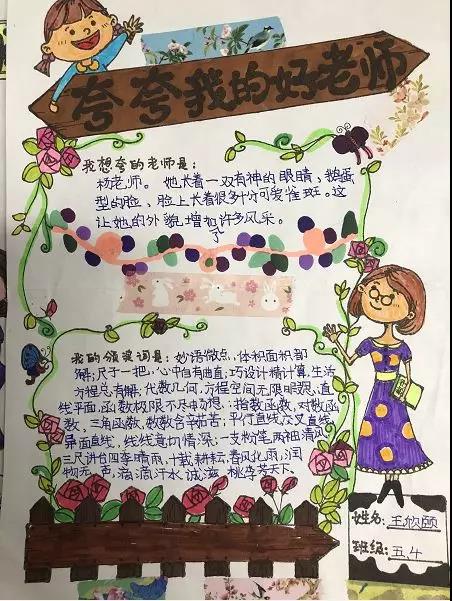 夸夸我的好老师
我想夸的老师是：
杨老师。她长着一双有神的眼睛，鹅蛋
型的脸，脸上长着很多十分可爱雀斑。这
让她的外貌增加了许多风采。
我的颁奖词是：妙语微点，体积面积都
解；尺子一把，心中自有曲直；巧设计精计算，生活
方程总有解，代数几何，方程空间无限
线平面，函数极限不尽畅想：指数函数，对数函
数，三角函数，数数含辛茹苦；平行直线交叉直线
异面直线，线线意切情深；一支粉笔，两袖清风
三尺讲台四季晴雨，十载耕耘，春风化雨，润
物无声，滴滴汗水诚滋桃李芳天下。
姓名：王欣颐
班级：五.4